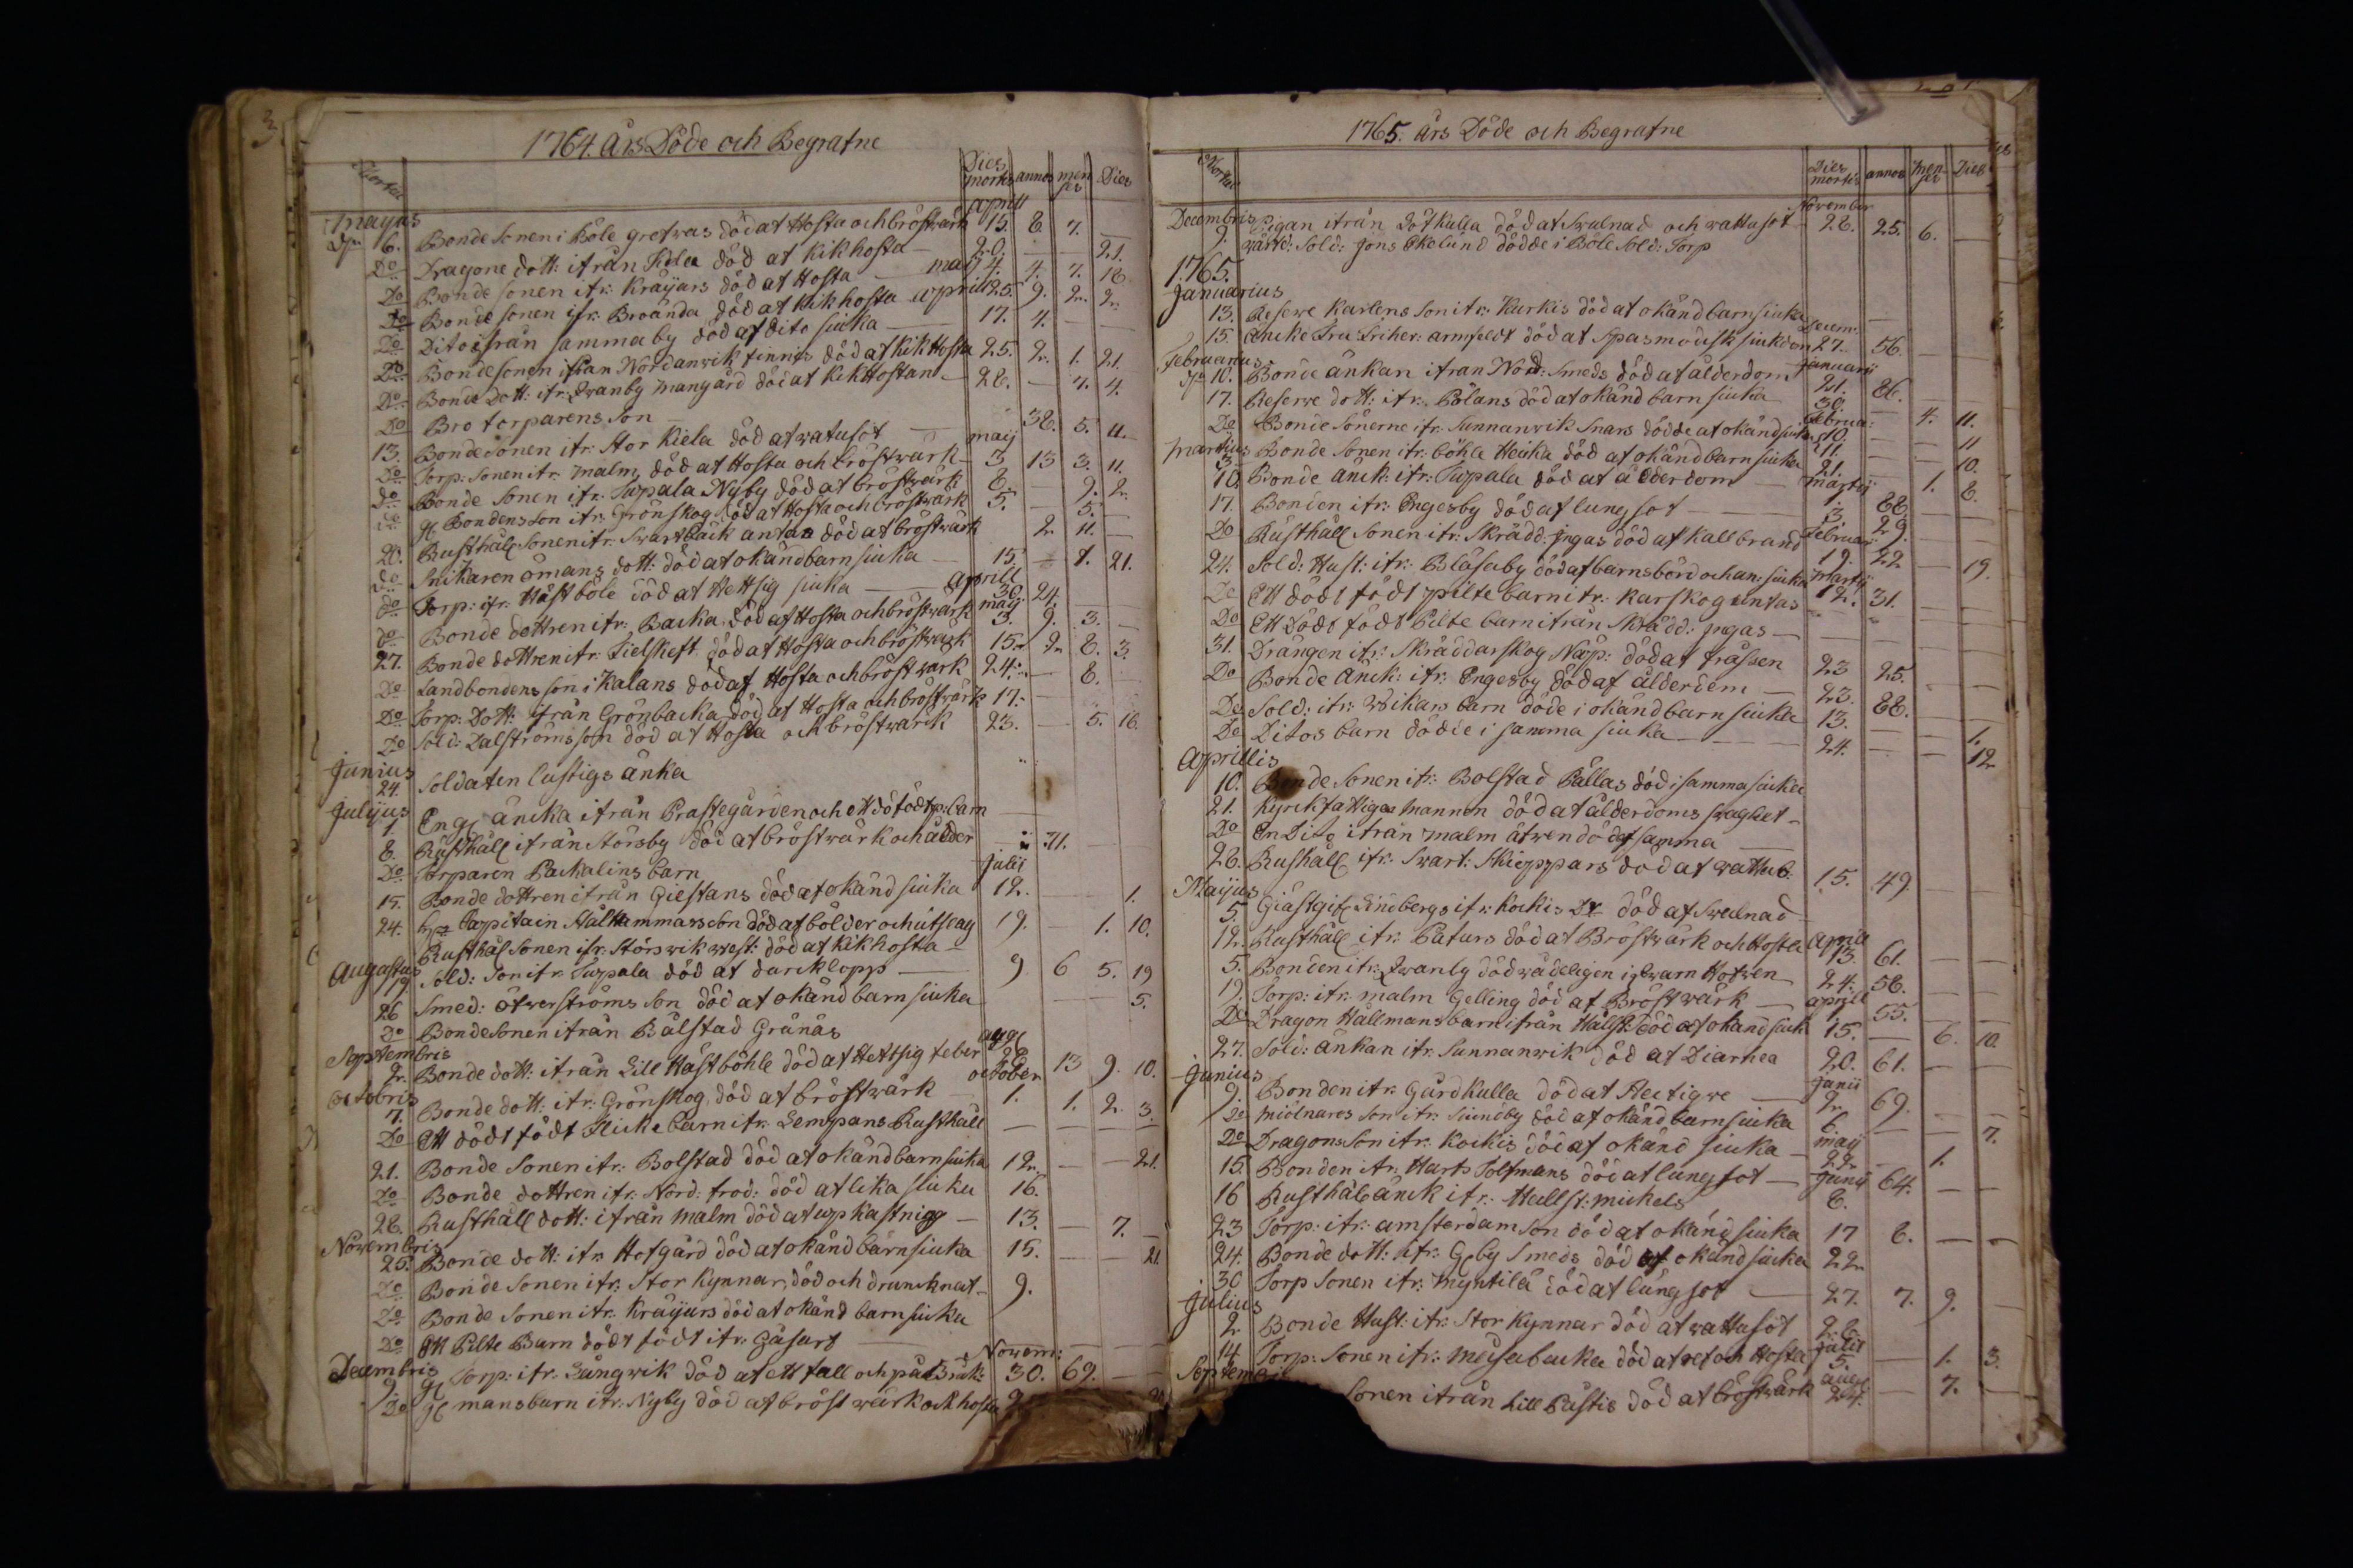 1764. års Döde och Begrafne
Dies mortis annos menses Dies
Mayus Aprill
Dn 6. Bonde Sonen i Böle grefvas död af Hosta och bröstvärk 15. 8. 7. —
Do Dragone dott: ifrån Kila död af Kikhosta — 20. — — 21.
Do Bonde sonen ifr: Kräijars död af Hosta — maij 4. 4. 7. 18
Do Bonde sonen ifr: Broända död af Kikhosta aprill 25. 9. 2. 2.
Do Dito ifrån samma by död af dito siuka — 17. 4. — —
Do Bonde sonen ifrån Nordanvik finnis död af Kikhosta 25. 2. 1. 21.
Do Bonde Dott: ifr: Ivanby mangård död af Kikhostan — 28. — 7. 4.
Do Bro torparens Son — 38. 5. 11.
13. Bonde sonen ifr: Stor Kiela död af vatusot — maij
Do Torp: sonen ifr: Malm, död af Hosta och bröstvärk — 3 13 3. 11.
do Bonde Sonen ifr: Tupala Nyby död af bröstvärk 8. — 9. 2.
do gl Bondens son ifr: Grönskog död af Hosta och bröstvärk 5. — 5. —
20. Rusthåll Sonen ifr: Svartbäck antas död af bröstvärk 2. 11. —
do Snikaren Ömans dott: död af okänd barnsiuka — 15. — 1. 21.
do Torp: ifr: Hästböle död af Hettsig siuka — Aprill 30. 24.
do Bonde dottren ifr: Backa död af Hosta och bröstvärk maij 3. 9. 3. —
27. Bonde dottren ifr: Fielskeft död af Hosta och bröstvärk 15. 2. 8. 3.
Do Landbondens son i Kalans död af Hosta och bröstvärk 24. — 8.
Do Torp: Dott: ifrån Grönbacka död af Hosta och bröstvärk 17. —
Do Sold: Dalströms son död af Hosta och bröstvärk 23. — 5. 16.
Junius
24. Soldaten Lustigs änka
Julijus
1. En gl äncka ifrån Prästegården och ett dö föd p: barn
8. Rusthåll ifrån Störsby död af bröstvärk och ålder 71.
Do Torparen Packalins barn Julii
15. Bonde dottren ifrån Giestans död af okänd siuka 12. 1.
24. hr Capitain Stålhammars son död af bölder och utslag 19. — 1. 10.
Rusthål Sonen ifr: Störsvik vest: död af Kikhosta —
Augustus
19 Sold: Son ifr: Tupala död af durcklopp — 9 6 5. 19
26 Smed: Öfverströms Son död af okänd barn siuka 5.
Do Bonde Sonen ifrån Bålstad Gränäs
Septembris aug
2. Bonde dott: ifrån Lill Hästböhle död af Hettsig feber 28 13 9. 10.
Octobris october
7. Bonde dott: ifr: Grönskog, död af bröstvärk — 1. 1. 2. 3.
Do Ett dödt födt Flicke barn ifr: Lempans Rusthåll — — — —
21. Bonde Sonen ifr: Bolstad död af okänd barn siuka 12. — — 21.
Do Bonde dottren ifr: Nord: trod: död af lika siuka 16.
28. Rusthåll dott: ifrån Malm död af upkastning — 13. — 7. —
Novembris
25. Bonde dott: ifr: Hofgård död af okänd barn siuka 15. — 21
Do Bonde Sonen ifr: Stor Kynnar, död och drunknat — 9.
Do Bonde Sonen ifr: Kräijars död af okänd barn siuka
Do Ett Pilte Barn dödt födt ifr: Gåsars —
Decembris Novem:
9. gl Torp: ifr: Långvik död af ett fall och på Bråk: 30. 69. —
Do gl mans barn ifr: Nyby död af bröst värk och hosta 9
1765. års Döde och Begrafne
Dies mortis annos menses Dies
Decembris November
9. Pigan ifrån Döt Kulla död af Svulnad och vattusot 28. 25. 6. —
Sold: Jöns Ekelund dödde i Böle Sold: Torp
1765.
Januarius
13. Reserve Karlens Son ifr: Kurkis död af okänd barn siuka
15. Äncke Fru Friher: Armfeldt död af Spasmodisk siukdom Decem: 27. 56.
Februarius Januarij
Dn 10. Bonde änkan ifrån Nord: Smeds död af ålderdom 21. 86.
17. Reserve dott: ifr: Pölans död af okänd barn siuka 30. — 4. 11.
Do Bonde Sönerne ifr: Sunnanvik Snars dödde af okänd siuka Februa: 10. — — 11
Martius 11. 10.
3. Bonde Sonen ifr: böhle Heicka död af okänd barn siuka 21. — 1. 8.
10. Bonde änck: ifr: Tupala död af ålderdom — Martij 1. 88.
17. Bonden ifr: Engesby död af lungsot — 3. 29.
Do Rusthåll Sonen ifr: Skrädd: Ingas död af kallbrand Februar: 19. 22 — 19.
24. Sold: Hust: ifr: Blåsaby död af barnsbörd och an: siuka Martij 12. 31.
Do Ett dödt födt pilte barn ifr: Karskog Antas
Do Ett Dödt födt Pilte barn ifrån Skrädd: Ingas —
31. Drängen ifr: Skräddarskog Näp: död af frässen 23 25.
Do Bonde Änck: ifr: Engesby död af ålderdom — 23. 88.
Do Sold: ifr: Vikars barn döde i okänd barn siuka 13. — — 1.
Do Ditos barn dödde i samma siuka — 24. — — 12
Aprillis
10. Bonde Sonen ifr: Bolstad Pallas död i samma siuka
21. Kyrckfattiga Mannen död af ålderdoms svaghet —
Do En Dito ifrån Malm äfven död af samma —
28. Rushåll ifr: Svart: Skieppars död af vattub. 15. 49.
Maijus
5. Giästgif Lindbergs ifr: Kockis Dr död af Svulnad —
12. Rusthåll ifr: Paturs död af Bröstvärk och Hosta Aprill 13. 61.
5. Bonden ifr: Ivanby död vådeligen i qvarn Hofven 24. 58.
19. Torp: ifr: Malm Gelling död af Bröstvärk — aprill 1 55.
Do Dragon Hällmans barn ifrån Hälst: död af okänd siuk 15. — 6. 10.
27. Sold: änkan ifr: Sunnanvik död af Diarhea 20. 61. —
Junius Junii
9. Bonden ifr: Gårdkulla död af Hectigve — 2. 69. —
Do Miölnares Son ifr: Siundby död af okänd barn siuka 6. — — 7.
Do Dragons Son ifr: Kockis död af okänd siuka — Maij 22 — 1.
15. Bonden ifr: Harts Tolfmans död af lungsot — Junij 64. —
16 Rusthåls änck ifr: Hallst: Mickels 8.
23 Torp: ifr: Amsterdam Son död af okänd siuka 17 8. — —
24. Bonde dott: ifr: Gl by Smeds död af okänd siuka 22
30 Torp Sonen ifr: Myntilä död af lungsot — 27. 7. 9.
Julius
2 Bonde Hust: ifr: Stor Kynnar död af vattusot 28.
14 Torp: Sonen ifr: Meijsabacka död af ref och Hosta Julii 5. — 1. 3.
Septem
Sonen ifrån Lill Pästis död af bröstvärk aug 24. — 7.